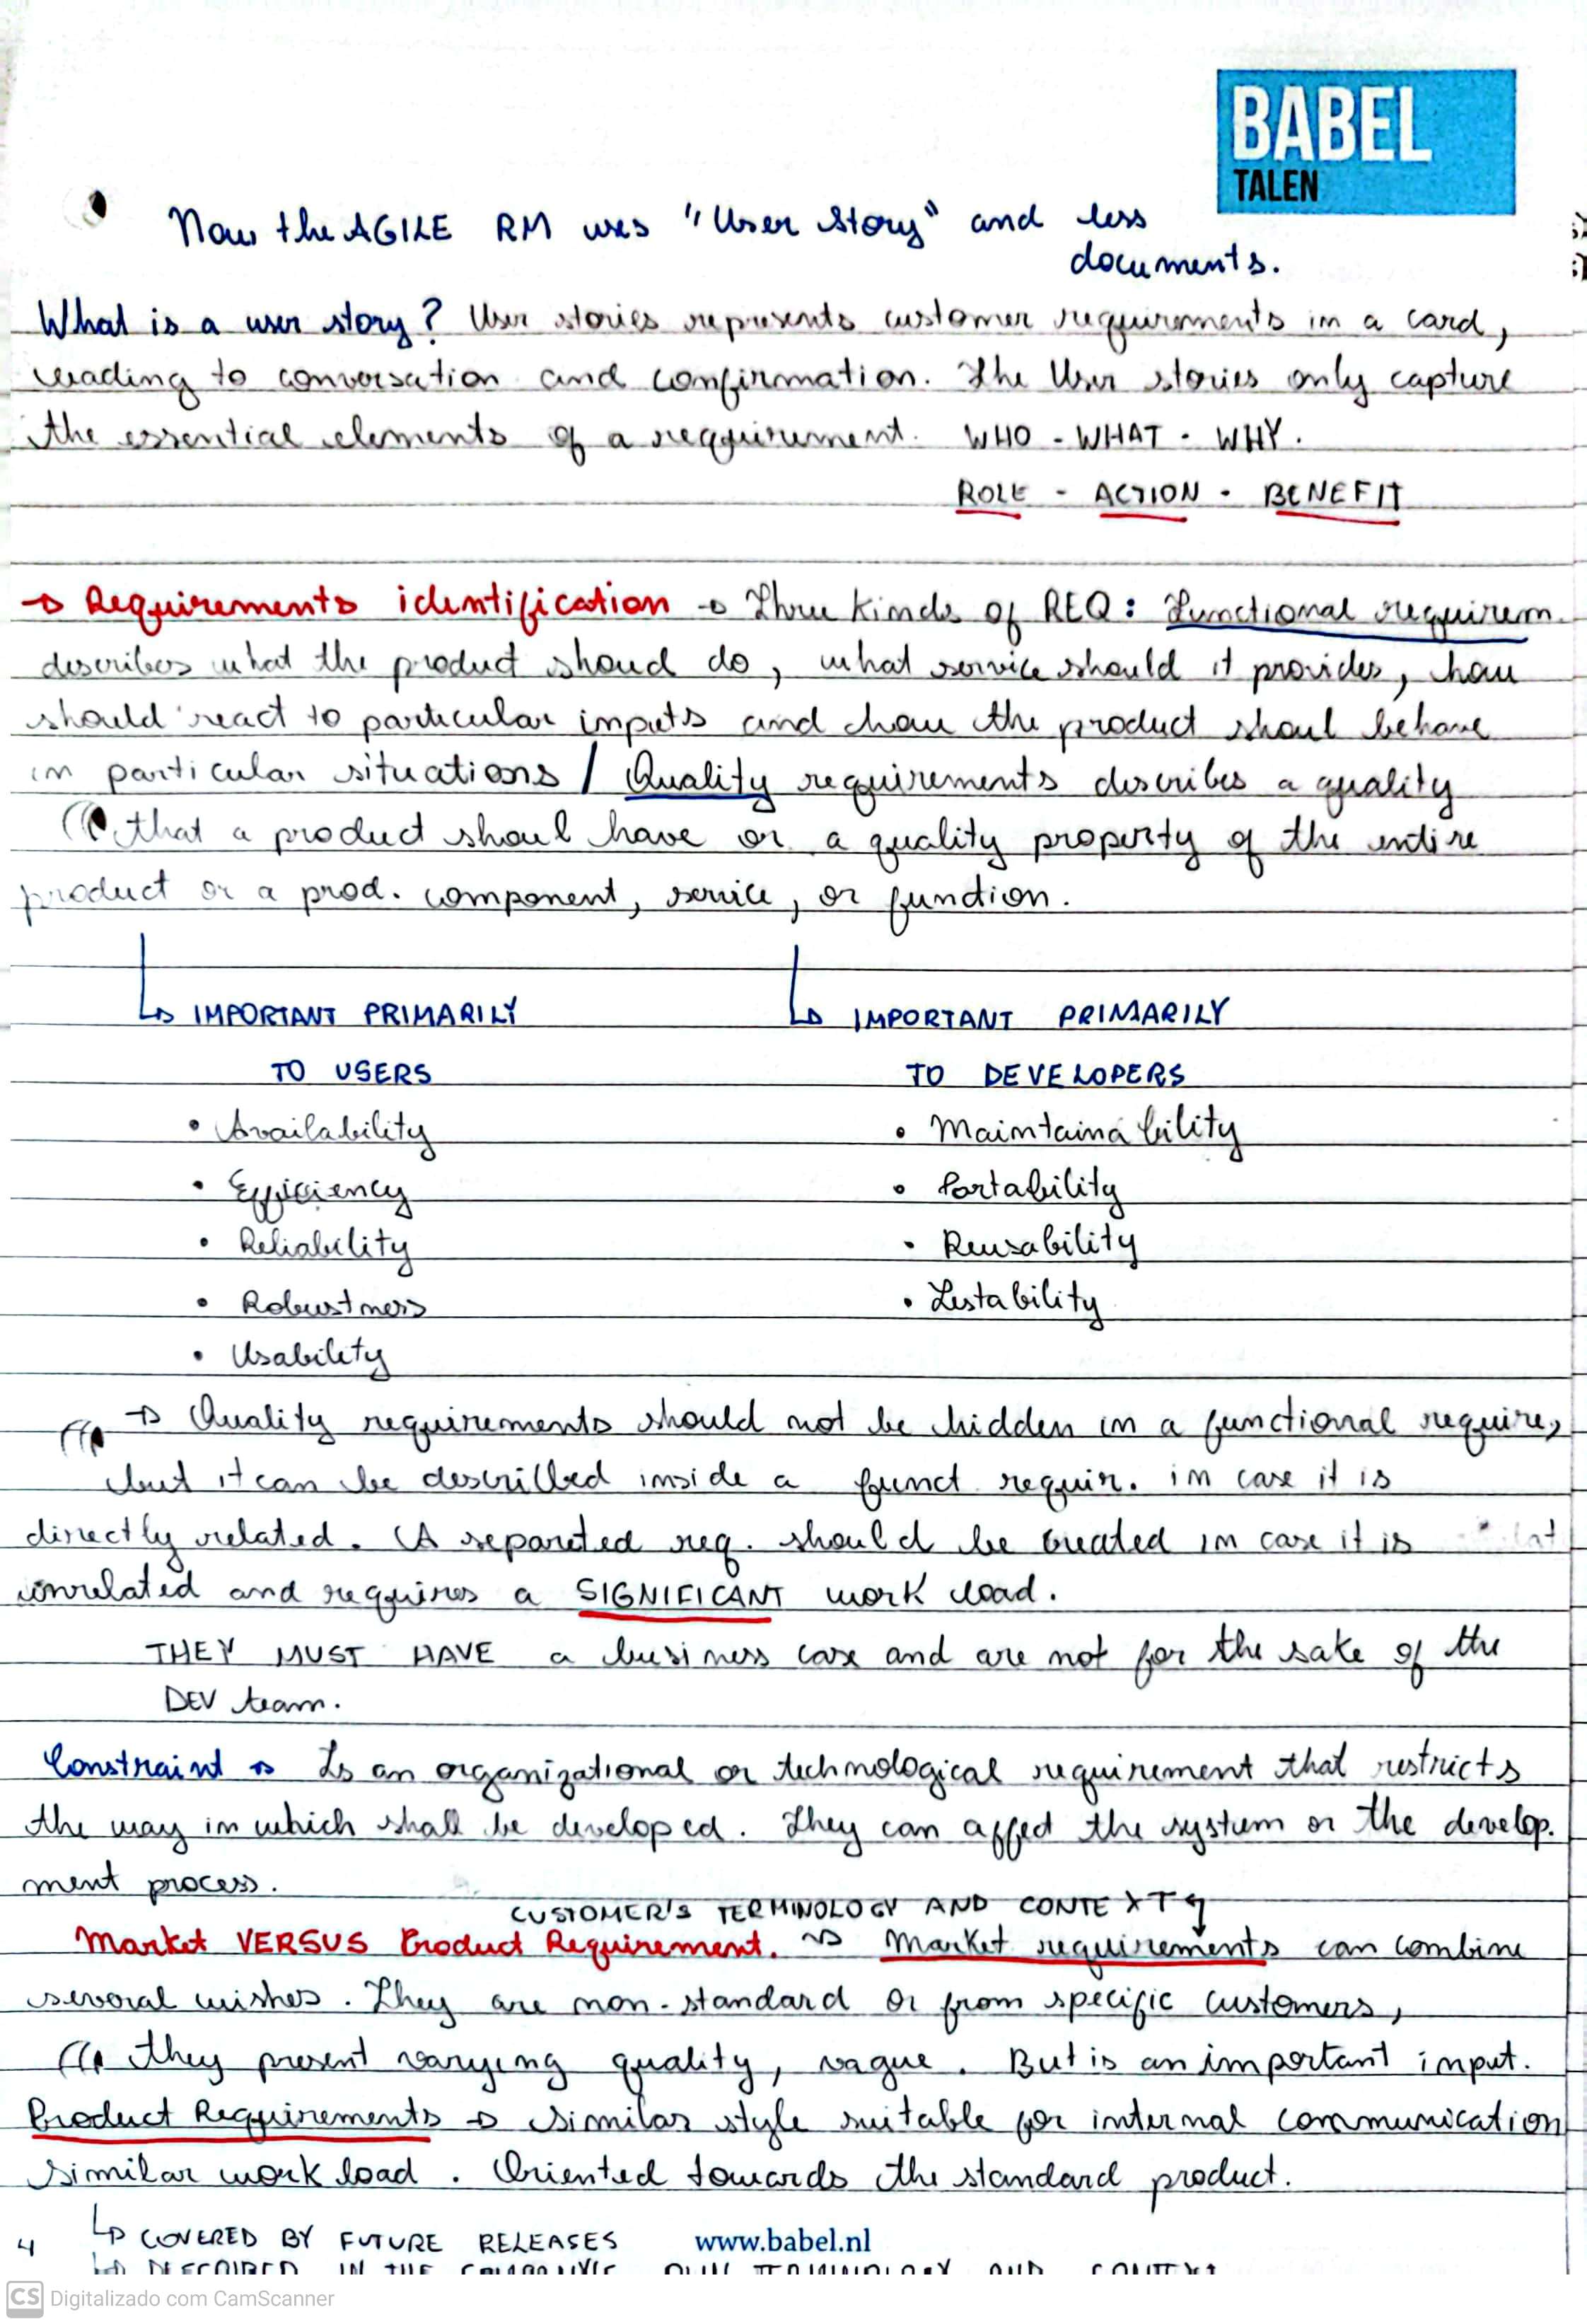 BABEL
TALEN
Now the AGILE RM uses "User Story" and less
documents.
What is a user story? User stories represents customer requirements in a card,
leading to conversation and confirmation. The User stories only capture
the essential elements of a requirement. WHO - WHAT - WHY.
ROLE - ACTION - BENEFIT
→ Requirements identification → Three kinds of REQ: Functional requirem.
describes what the product shoud do, what service should it provides, how
should react to particular inputs and how the product shoul behave
in particular situations / Quality requirements describes a quality
that a product shoul have or a quality property of the entire
product or a prod. component, service, or function.
↳ IMPORTANT PRIMARILY ↳ IMPORTANT PRIMARILY
TO USERS TO DEVELOPERS
• Availability • Maintainability
• Efficiency • Portability
• Reliability • Reusability
• Robustness • Testability
• Usability
→ Quality requirements should not be hidden in a functional require,
but it can be described inside a funct requir. in case it is
directly related. (A separeted req. should be created in case it is
unrelated and requires a SIGNIFICANT work load.
THEY MUST HAVE a business case and are not for the sake of the
DEV team.
Constraint → Is an organizational or technological requirement that restricts
the way in which shall be developed. They can affect the system or the develop.
ment process.
CUSTOMER'S TERMINOLOGY AND CONTEXT
Market VERSUS Product Requirement. → Market requirements can combine
several wishes. They are non-standard or from specific customers,
they present varying quality, vague. But is an important input.
Product Requirements → similar style suitable for internal communication
similar work load. Oriented towards the standard product.
↳ COVERED BY FUTURE RELEASES
↳ DESCRIBED IN THE COMPANYS OWN TERMINOLOGY AND CONTEXT
4 www.babel.nl
CS Digitalizado com CamScanner